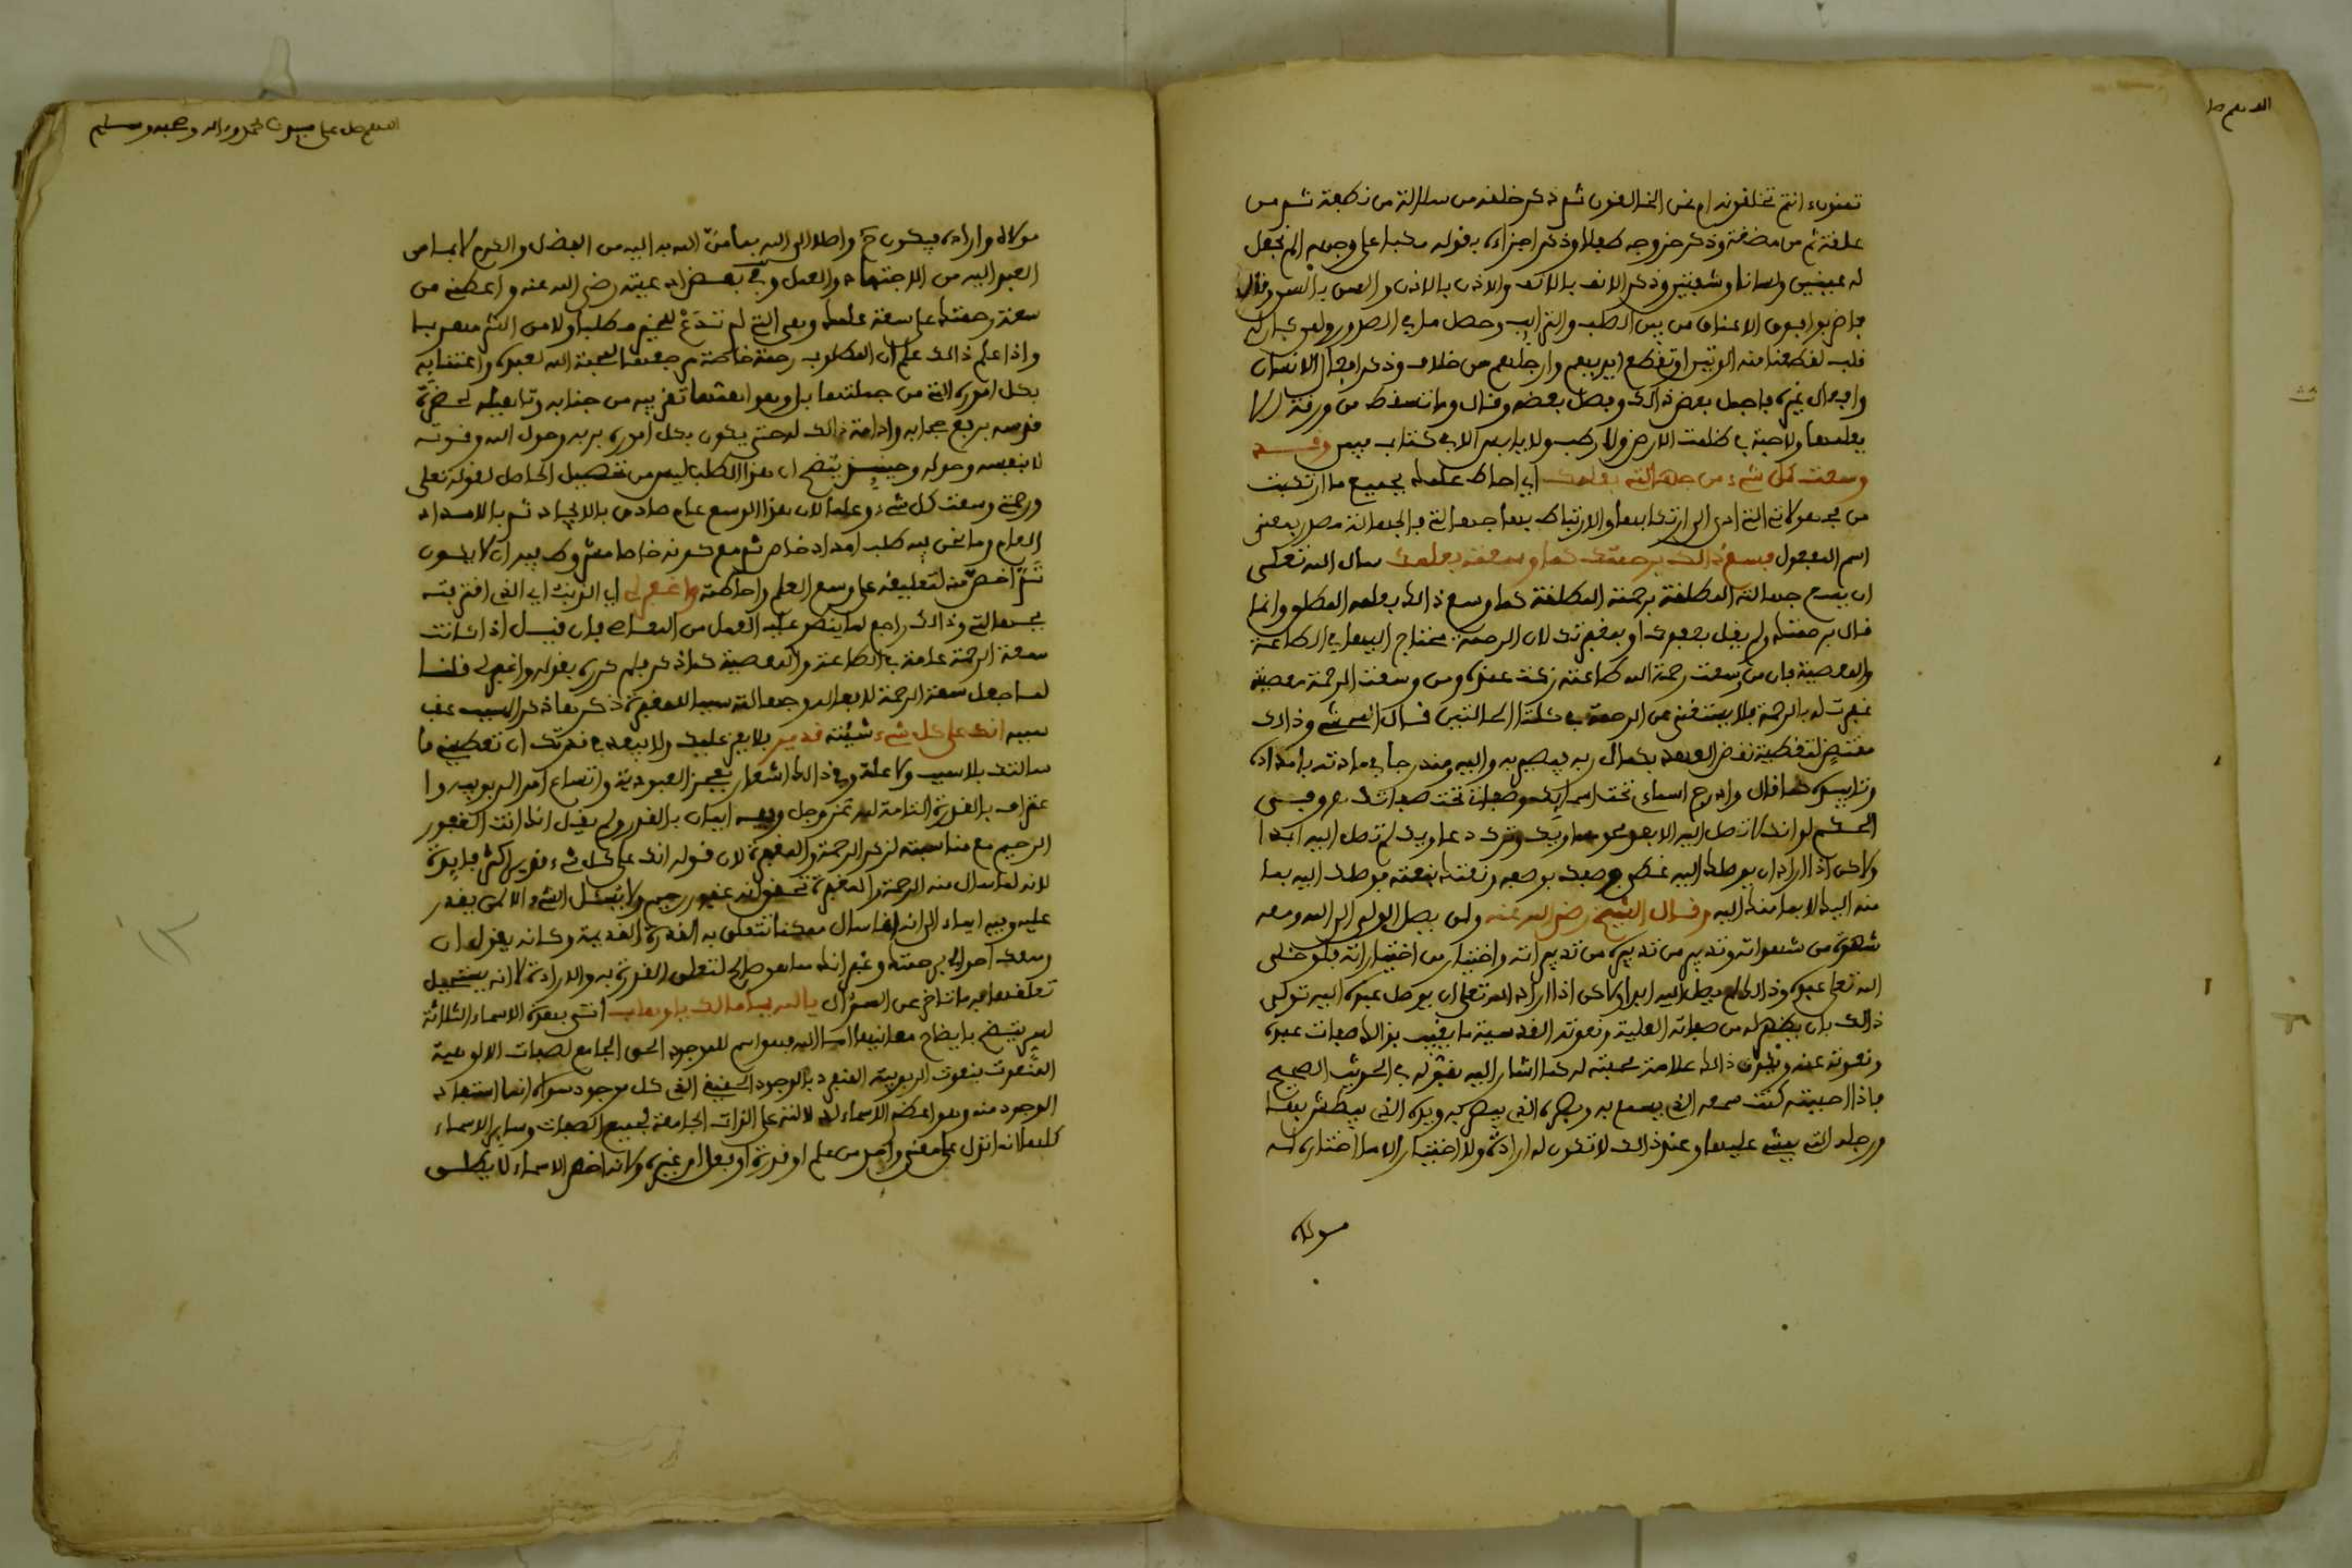 تمنون ءانتم تخلقونه ام نحن الخالقون ثم ذكر خلقه من سلالة من نطفة ثم من
علقة ثم من مضغة وذكر خروجه طفلا وذكر اجزاءه بقوله مكبا على وجهه الم نجعل
له عينين ولسانا وشفتين وذكر الانف بالانف والاذن بالاذن والسن بالسن وقال
فاضربوا فوق الاعناق من بين الصلب والترائب وحصل ما في الصدور
قلب لقطعنا منه الوتين او تقطع ايديهم وارجلهم من خلاف وذكر افعال الانسان
وافعال غيره باجمل بعض ذلك وفصل بعضه وقال وما تسقط من ورقة الا
يعلمها ولا حبة في ظلمت الارض ولا رطب ولا يابس الا في كتاب مبين وقد
وسعت كل شيء من جهالتي بعلمك اي احاط علمك بجميع ما ارتكبت
من مجهولاتي التي ادى الى ارتكابها والارتباط بها جهالتي فالجهالة مصدر بمعنى
اسم المفعول فسع ذلك برحمتك كما وسعته بعلمك سال الله تعلى
ان يسع جهالته المطلقة برحمته المطلقة كما وسع ذلك بعلمه المطلق وانما
قال برحمتك ولم يقل بعفوك او بمغفرتك لان الرحمة محتاج اليها في الطاعة
والمعصية فان من وسعت رحمة الله طاعته زكت عنده ومن وسعت الرحمة معصيته
غفرت له بالرحمة فلا يستغنى عن الرحمة في كلتا الحالتين قال الششتري وذلك
مقتض لتغطية نقص العبد بكمال ربه فيصير به واليه ومندرجا في مادته بامداده
وتاييده كما قال وادرج اسماءي تحت اسمائك وصفاتي تحت صفاتك وفي
الحكم لو انك لا تصل اليه الا بعد محو مساويك وترك دعاويك لم تصل اليه ابدا
ولكن اذا اراد ان يوصلك اليه غطى وصفك بوصفه ونعتك بنعته فوصلك اليه بما
منه اليك لا بما منك اليه وقال الشيخ رضي الله عنه ولن يصل الولي الى الله ومعه
شهوة من شهواته وتدبير من تدبيراته واختيار من اختياراته فلو خلى
الله تعلى عبده وذلك لم يصل اليه ابدا ولكن اذا اراد الله تعلى ان يوصل عبده اليه تولى
ذلك بان يظهر له من صفاته العلية ونعوته القدسية ما يغيب بذلك صفات عبده
ونعوته عنه وتكون ذلك علامة محبته له كما اشار اليه بقوله في الحديث الصحيح
فاذا احببته كنت سمعه الذي يسمع به وبصره الذي يبصر به ويده التي يبطش بها
ورجله التي يمشي عليها وعند ذلك لا تكون له ارادة ولا اختيار الا ما اختاره له
مولاه
اللهم صل على سيدنا محمد وءاله وصحبه وسلم
مولاه واراده فيكون واصلا الى الله بما من الله به اليه من الفضل والكرم لا بما من
العبد اليه من الاجتهاد والعمل وفي بعض ادعيته رضي الله عنه واعطني من
سعة رحمتك على سعة علمك وهي التي لم تدع لغيرك مطلبا ولا من الشر مهربا
واذا علم ذلك علم ان المطلوب رحمة خاصة مرجعها لمحبة الله لعبده واعتنائه
بكل اموره التي من جملتها بل وهو اهمها تقريبه من جنابه وتاهيله لحضرة
قدسه برفع حجابه وادامة ذلك له حتى يكون بكل اموره بربه وحول الله وقوته
لا بنفسه وحوله وحينئذ يتضح ان هذا الطلب ليس من تحصيل الحاصل لقوله تعلى
ورحمتي وسعت كل شيء وعلما لان هذا الوسع عام صادق بالايجاد ثم بالامداد
العام وما نحن فيه طلب امداد خاص ثم مع كونه خاصا
ثم اخص منه لتعليقه على وسع العلم واحاطته واغفر لي اي الذنب اي الذي اقترفته
بجهالتي وذلك راجع لما ينضم عليه العمل من النقص فان قيل اذا كانت
سعة الرحمة عامة في الطاعة والمعصية كما ذكر فلم كرره بقوله واغفر لي قلنا
لما جعل سعة الرحمة لافعاله وجهالته سببا للمغفرة ذكرها ذكر السبب عقب
سببه انك على كل شيء شئته قدير فلا يعز عليك ولا يبعد في قدرتك ان تعطيني ما
سالتك بلا سبب ولا علة وفي ذلك اشعار بعجز العبودية واتساع امر الربوبية وا
عتراف بالقدرة التامة لله عز وجل وفيه اتيان بالقدر ولم يقل انك انت الغفور
الرحيم مع مناسبته لذكر الرحمة والمغفرة لان قوله انك على كل شيء قدير اكثر فائدة
لانه لما سال منه الرحمة والمغفرة تحقق انه غفور رحيم ولا يسئل الشيء الا لمن يقدر
عليه وفيه ايماء الى انه انما سال ممكنا تتعلق به القدرة القديمة وكانه يقول ان
وسعك احوالي برحمتك وغفرانك مما هو صالح لتعلق القدرة به والارادة لانه يستحيل
تعلقها به ما تاخر عن السؤال يا الله يا مالك يا وهاب اتى بهذه الاسماء الثلاثة
ليتضح بايضاح معانيها اما الله فهو اسم للموجود الحق الجامع لصفات الالوهية
المنعوت بنعوت الربوبية المنفرد بالوجود الحقيقي الذي كل موجود سواه انما استفاد
الوجود منه وهو اعظم الاسماء لدلالته على الذات الجامعة لجميع الصفات وسائر الاسماء
كلها لانه انزل على معنى واحد من علم او قدرة او فعل او غيره ولانه اخص الاسماء لا يطلق
١٢